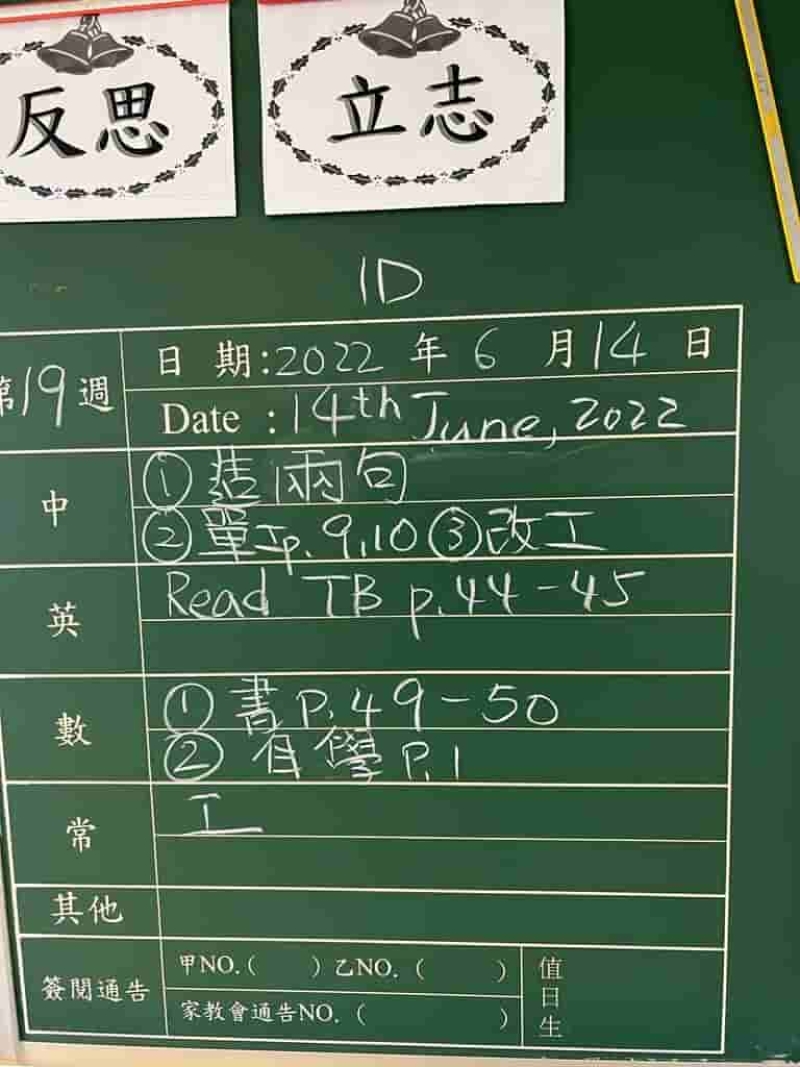 反思
立志
1D
第19週
日 期:2022 年 6 月 14 日
Date :14th June, 2022
中
① 造兩句
② 單工p.9,10 ③改工
英
Read TB p.44-45
數
① 書 P.49-50
② 自學 P.1
常
工
其他
簽閱通告
甲NO.( ) 乙NO. ( )
家教會通告NO. ( )
值日生